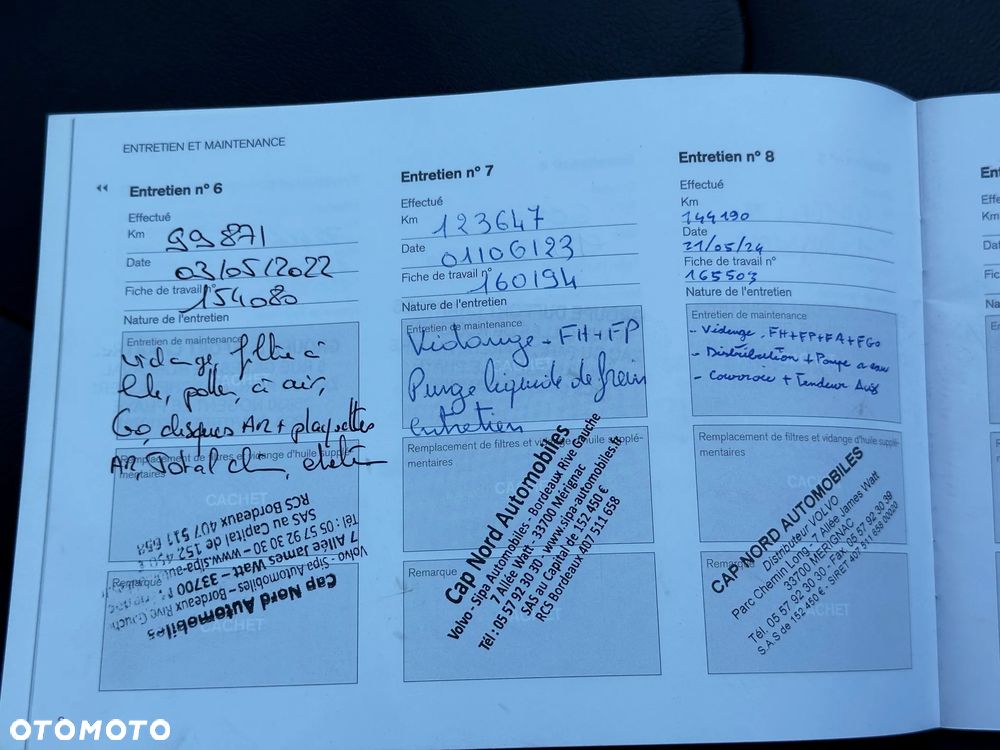 ENTRETIEN ET MAINTENANCE
Entretien n° 6
Effectué
Km 99871
Date 03/05/2022
Fiche de travail n° 154080
Nature de l'entretien
Entretien de maintenance
Vidange, filtre à
hle, pollen, à air,
Go, disques AR + plaquettes
AR, Total
Remplacement de filtres et vidange d'huile supplé-
mentaires
CACHET
Remarque
Cap Nord Automobiles
Volvo - Sipa Automobiles - Bordeaux Rive Gauche
7 Allée James Watt - 33700
Tél : 05 57 92 30 30 - www.sipa-au
SAS au Capital de 152 450 €
RCS Bordeaux 407 511 658
Entretien n° 7
Effectué
Km 123647
Date 01/06/23
Fiche de travail n° 160194
Nature de l'entretien
Entretien de maintenance
Vidange + FH + FP
Purge liquide de frein
entretien
Remplacement de filtres et vidange d'huile supplé-
mentaires
Remarque
Cap Nord Automobiles
Volvo - Sipa Automobiles - Bordeaux Rive Gauche
7 Allée Watt - 33700 Mérignac
Tél : 05 57 92 30 30 - www.sipa-automobiles.fr
SAS au Capital de 152 450 €
RCS Bordeaux 407 511 658
Entretien n° 8
Effectué
Km 144190
Date 21/05/24
Fiche de travail n° 165503
Nature de l'entretien
Entretien de maintenance
- Vidange + FH + FP + FA + FGo
- Distribution + Pompe a eau
- Courroie + Tendeur Aux
Remplacement de filtres et vidange d'huile supplé-
mentaires
CACHET
CAP NORD AUTOMOBILES
Distributeur VOLVO
Parc Chemin Long - 7 Allée James Watt
33700 MERIGNAC
Tél. 05 57 92 30 30 - Fax 05 57 92 30 39
S.A.S de 152 450 € - SIRET 407 511 658 00020
OTOMOTO